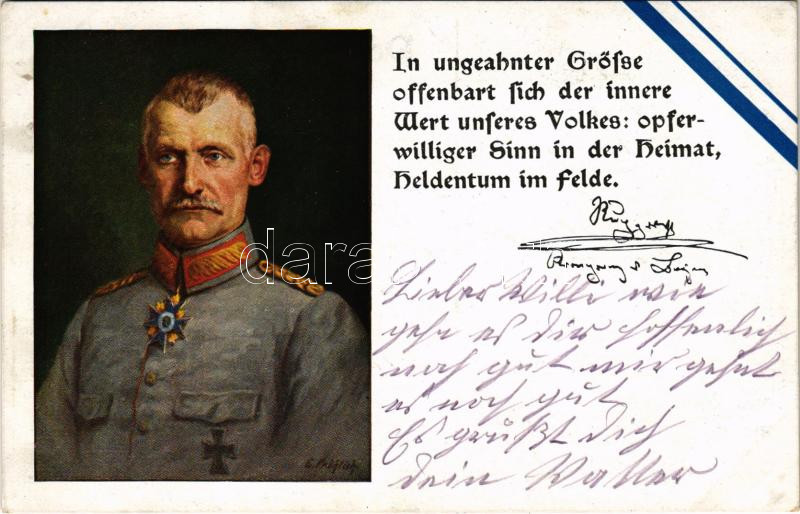 In ungeahnter Größe
offenbart sich der innere
Wert unseres Volkes: opfer-
williger Sinn in der Heimat,
Heldentum im Felde.
Rupprecht
Kronprinz v. Bayern
Lieber Willi wie
geht es dir hoffentlich
noch gut mir gehet
es noch gut
Es grüßt dich
dein Walter
dara